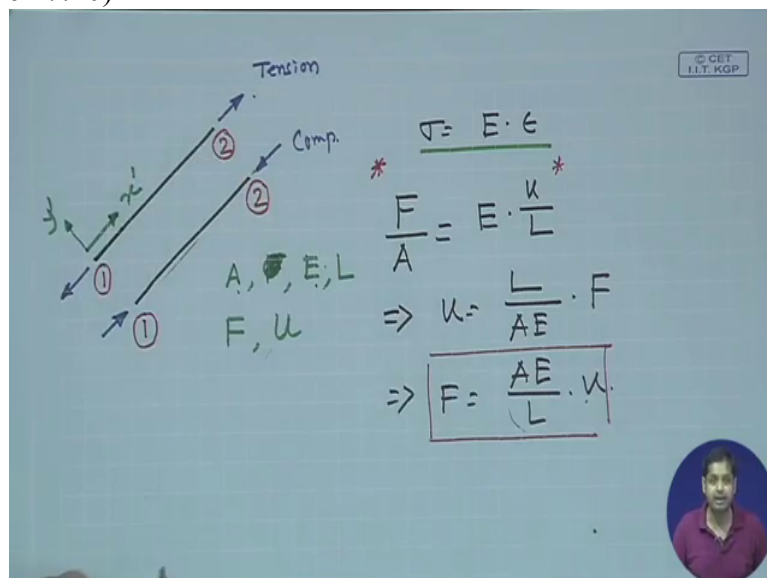 © CET
I.I.T. KGP
Tension
Comp.
②
②
①
①
x'
A, E, L
F, u
σ = E · ε
* F/A = E · u/L *
=> u = L/AE · F
=> F = AE/L · u.